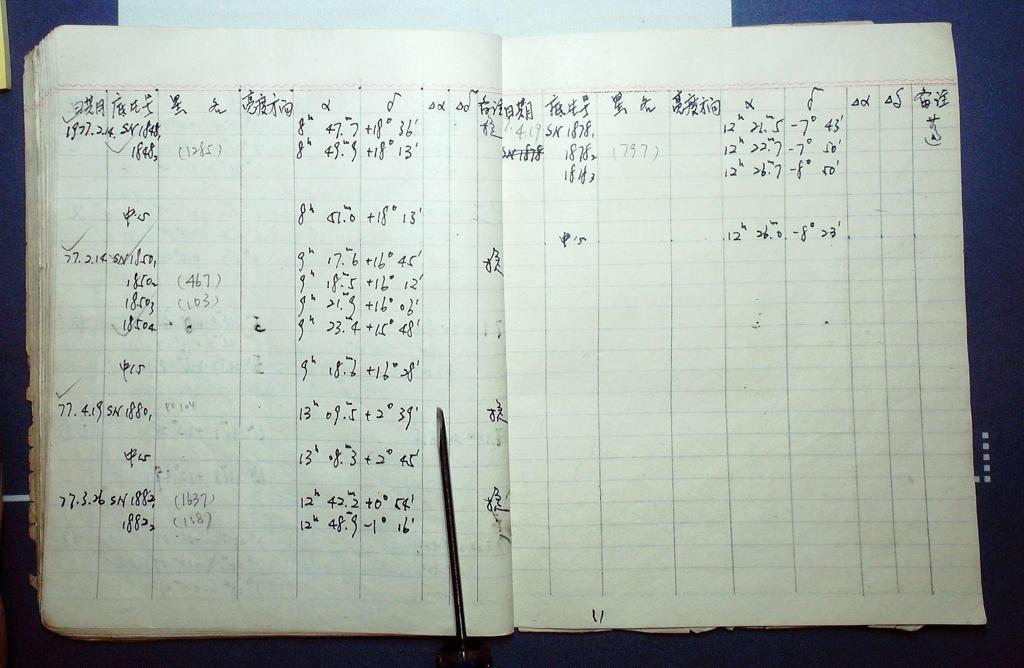 日期 底片号 星名 亮度 方向 α δ Δα Δδ 备注
1977.2.14. SN1848₁ 8ʰ 47.ᵐ7 +18° 36′
1848₂ (1285) 8ʰ 49.ᵐ9 +18° 13′
中心 8ʰ 51.ᵐ0 +18° 13′
77.2.14 SN1850₁ 9ʰ 17.ᵐ6 +16° 45′
1850₂ (467) 9ʰ 18.ᵐ5 +16° 12′
1850₃ (103) 9ʰ 21.ᵐ9 +16° 03′
1850₄ 9ʰ 23.ᵐ4 +15° 48′
中心 9ʰ 18.ᵐ6 +16° 28′
77.4.19 SN1880₁ 13ʰ 09.ᵐ5 +2° 39′
中心 13ʰ 08.ᵐ3 +2° 45′
77.3.26 SN1882₁ (1637) 12ʰ 42.ᵐ2 +0° 54′
1882₂ (138) 12ʰ 48.ᵐ9 -1° 16′
日期 底片号 星名 亮度 方向 α δ Δα Δδ 备注
4.19 SN1878₁ 12ʰ 21.ᵐ5 -7° 43′
SN1878 1878₂ (797) 12ʰ 22.ᵐ7 -7° 50′
12ʰ 26.ᵐ7 -8° 50′
中心 12ʰ 26.ᵐ0 -8° 23′
11